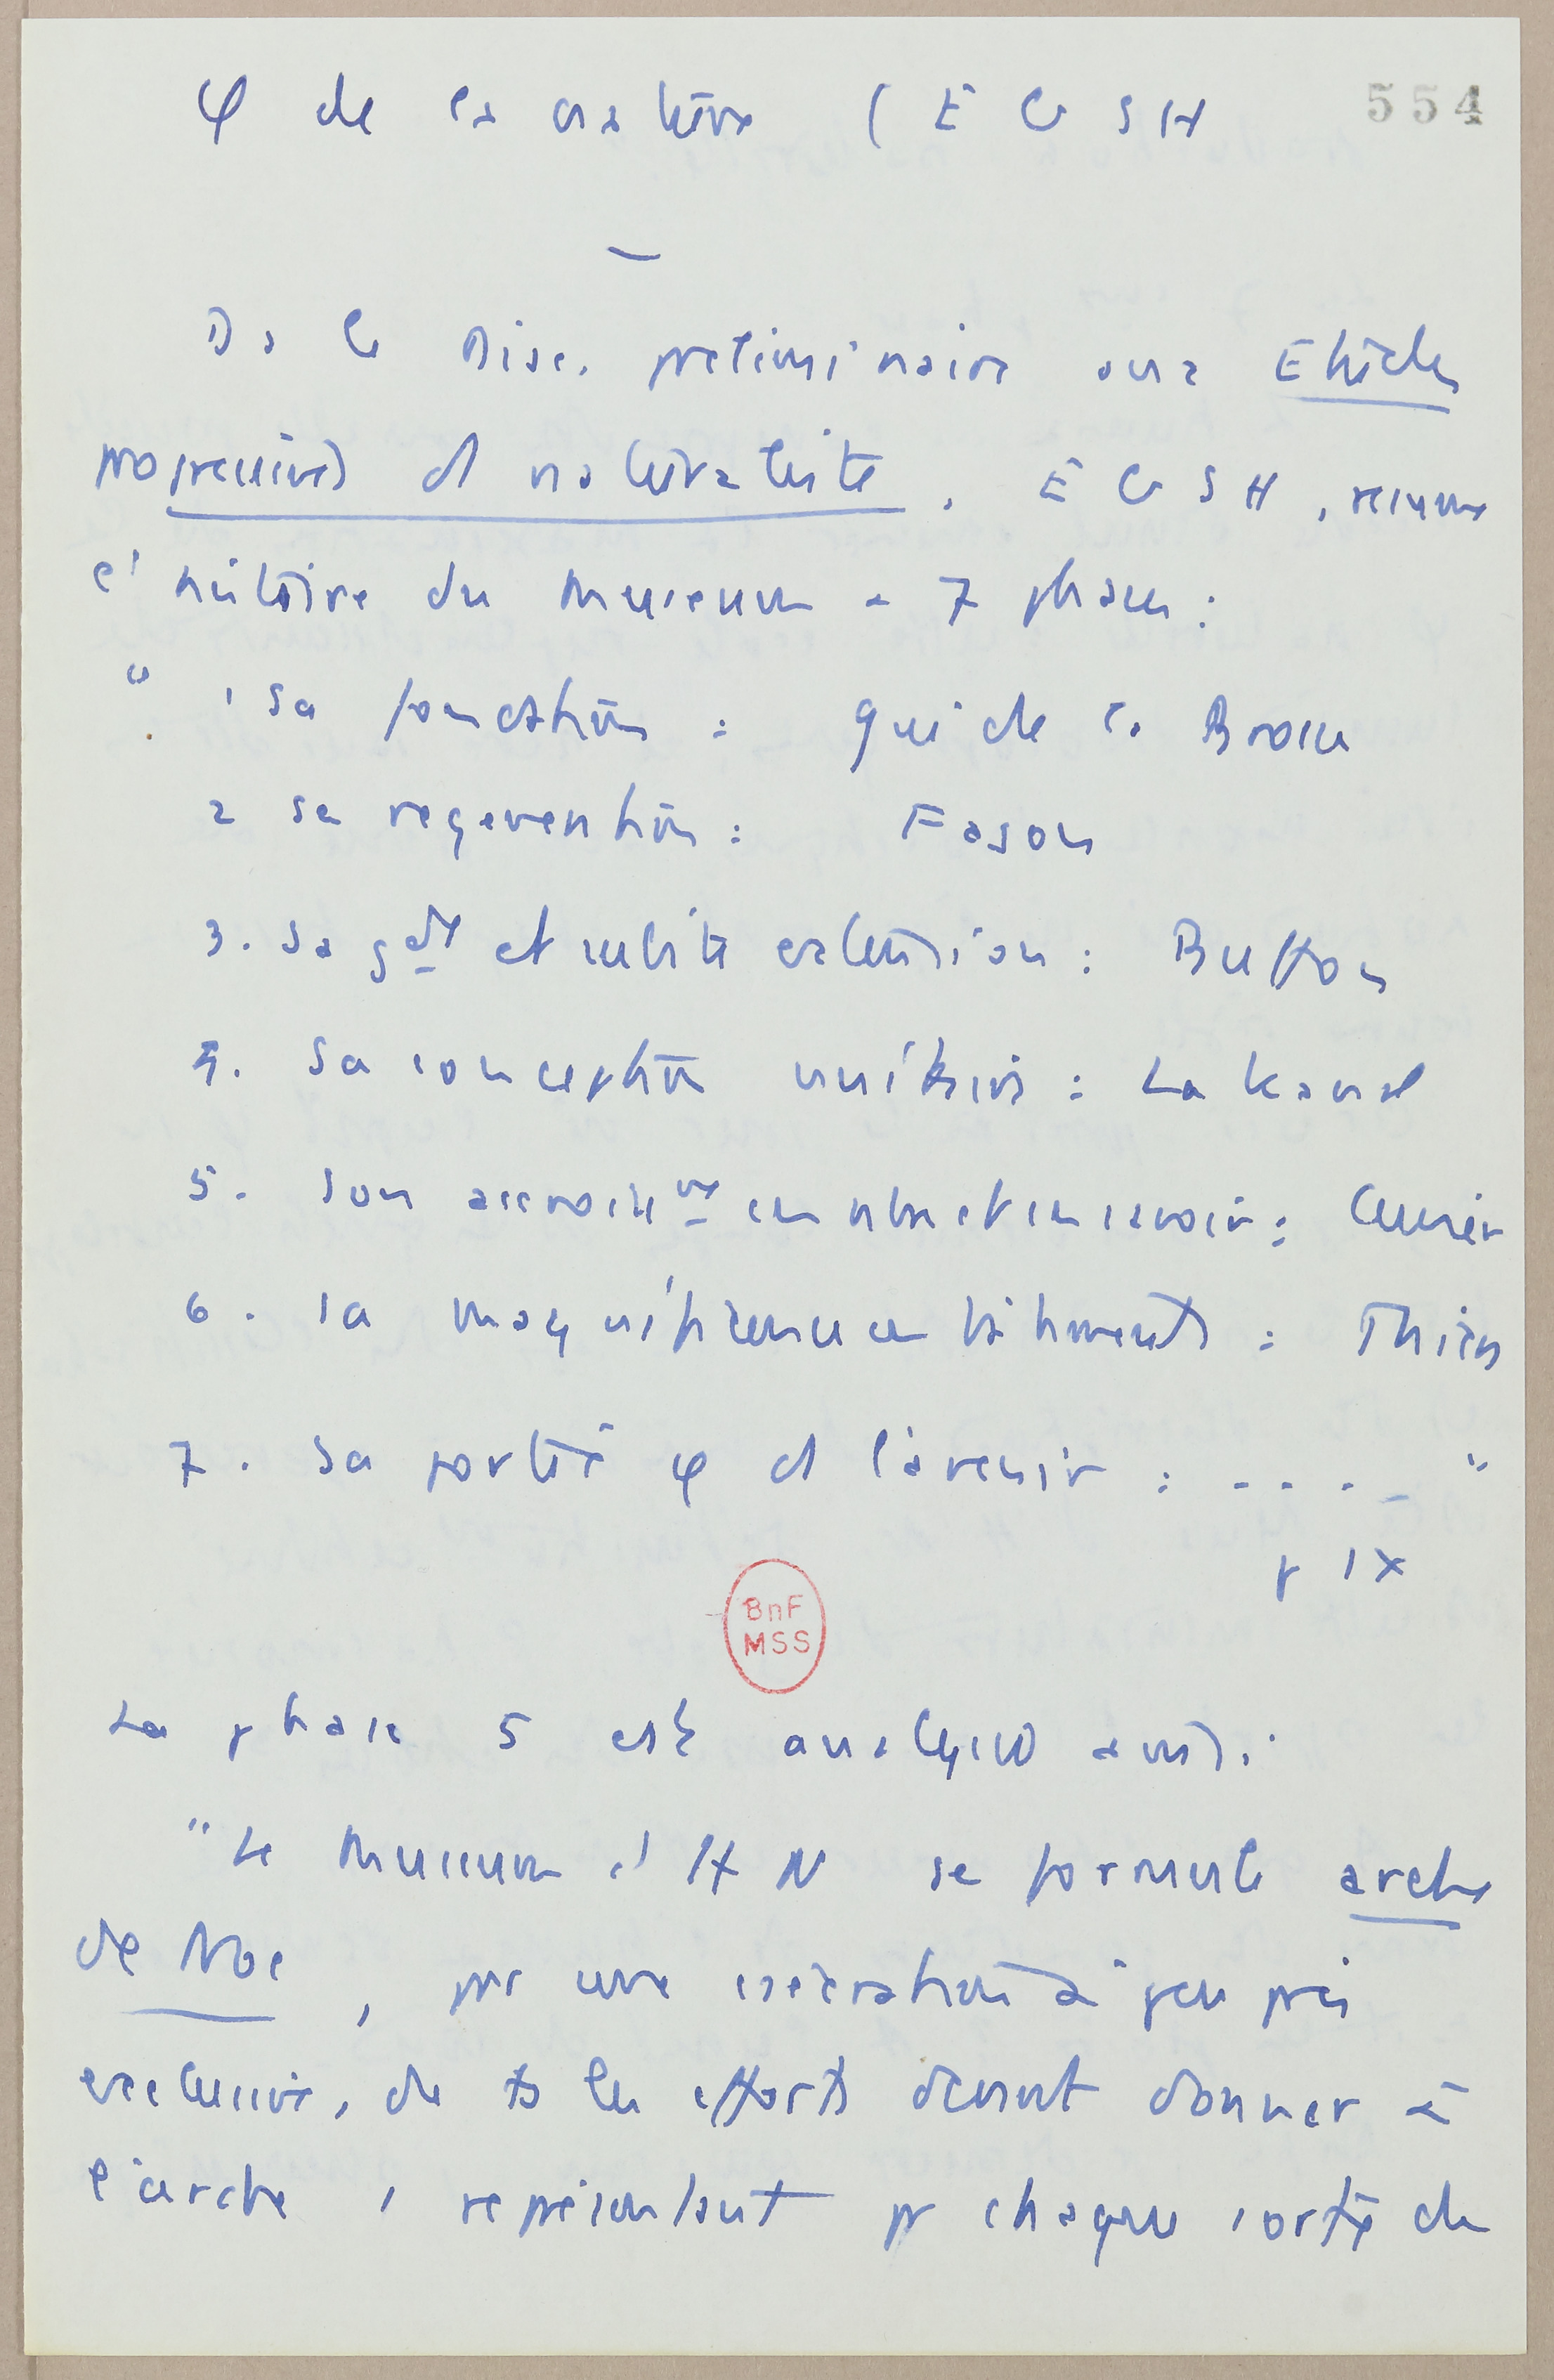 φ de la nature ( E G S H
554
—
Ds le Disc. preliminaire aux Etudes
progressives d'1 naturaliste. E G S H, resume
l'histoire du Museum en 7 phases :
" 1 sa fondation : Gui de la Brosse
2 sa regeneration : Fagon
3. sa gde et subite extension : Buffon
4. Sa conception unitaire : Lakanal
5. son accroisst en nbre et en savoir : Cuvier
6. sa magnificence en bâtiments : Thiers
7. Sa portée φ et l'avenir : . . . . "
p IX
BnF
MSS
La phase 5 est analysée ainsi :
" Le Museum d'H N se formule arche
de Noe, par une aspiration à peu près
exclusive, de ts les efforts devant donner à
l'arche, représentant pr chaque sorte de